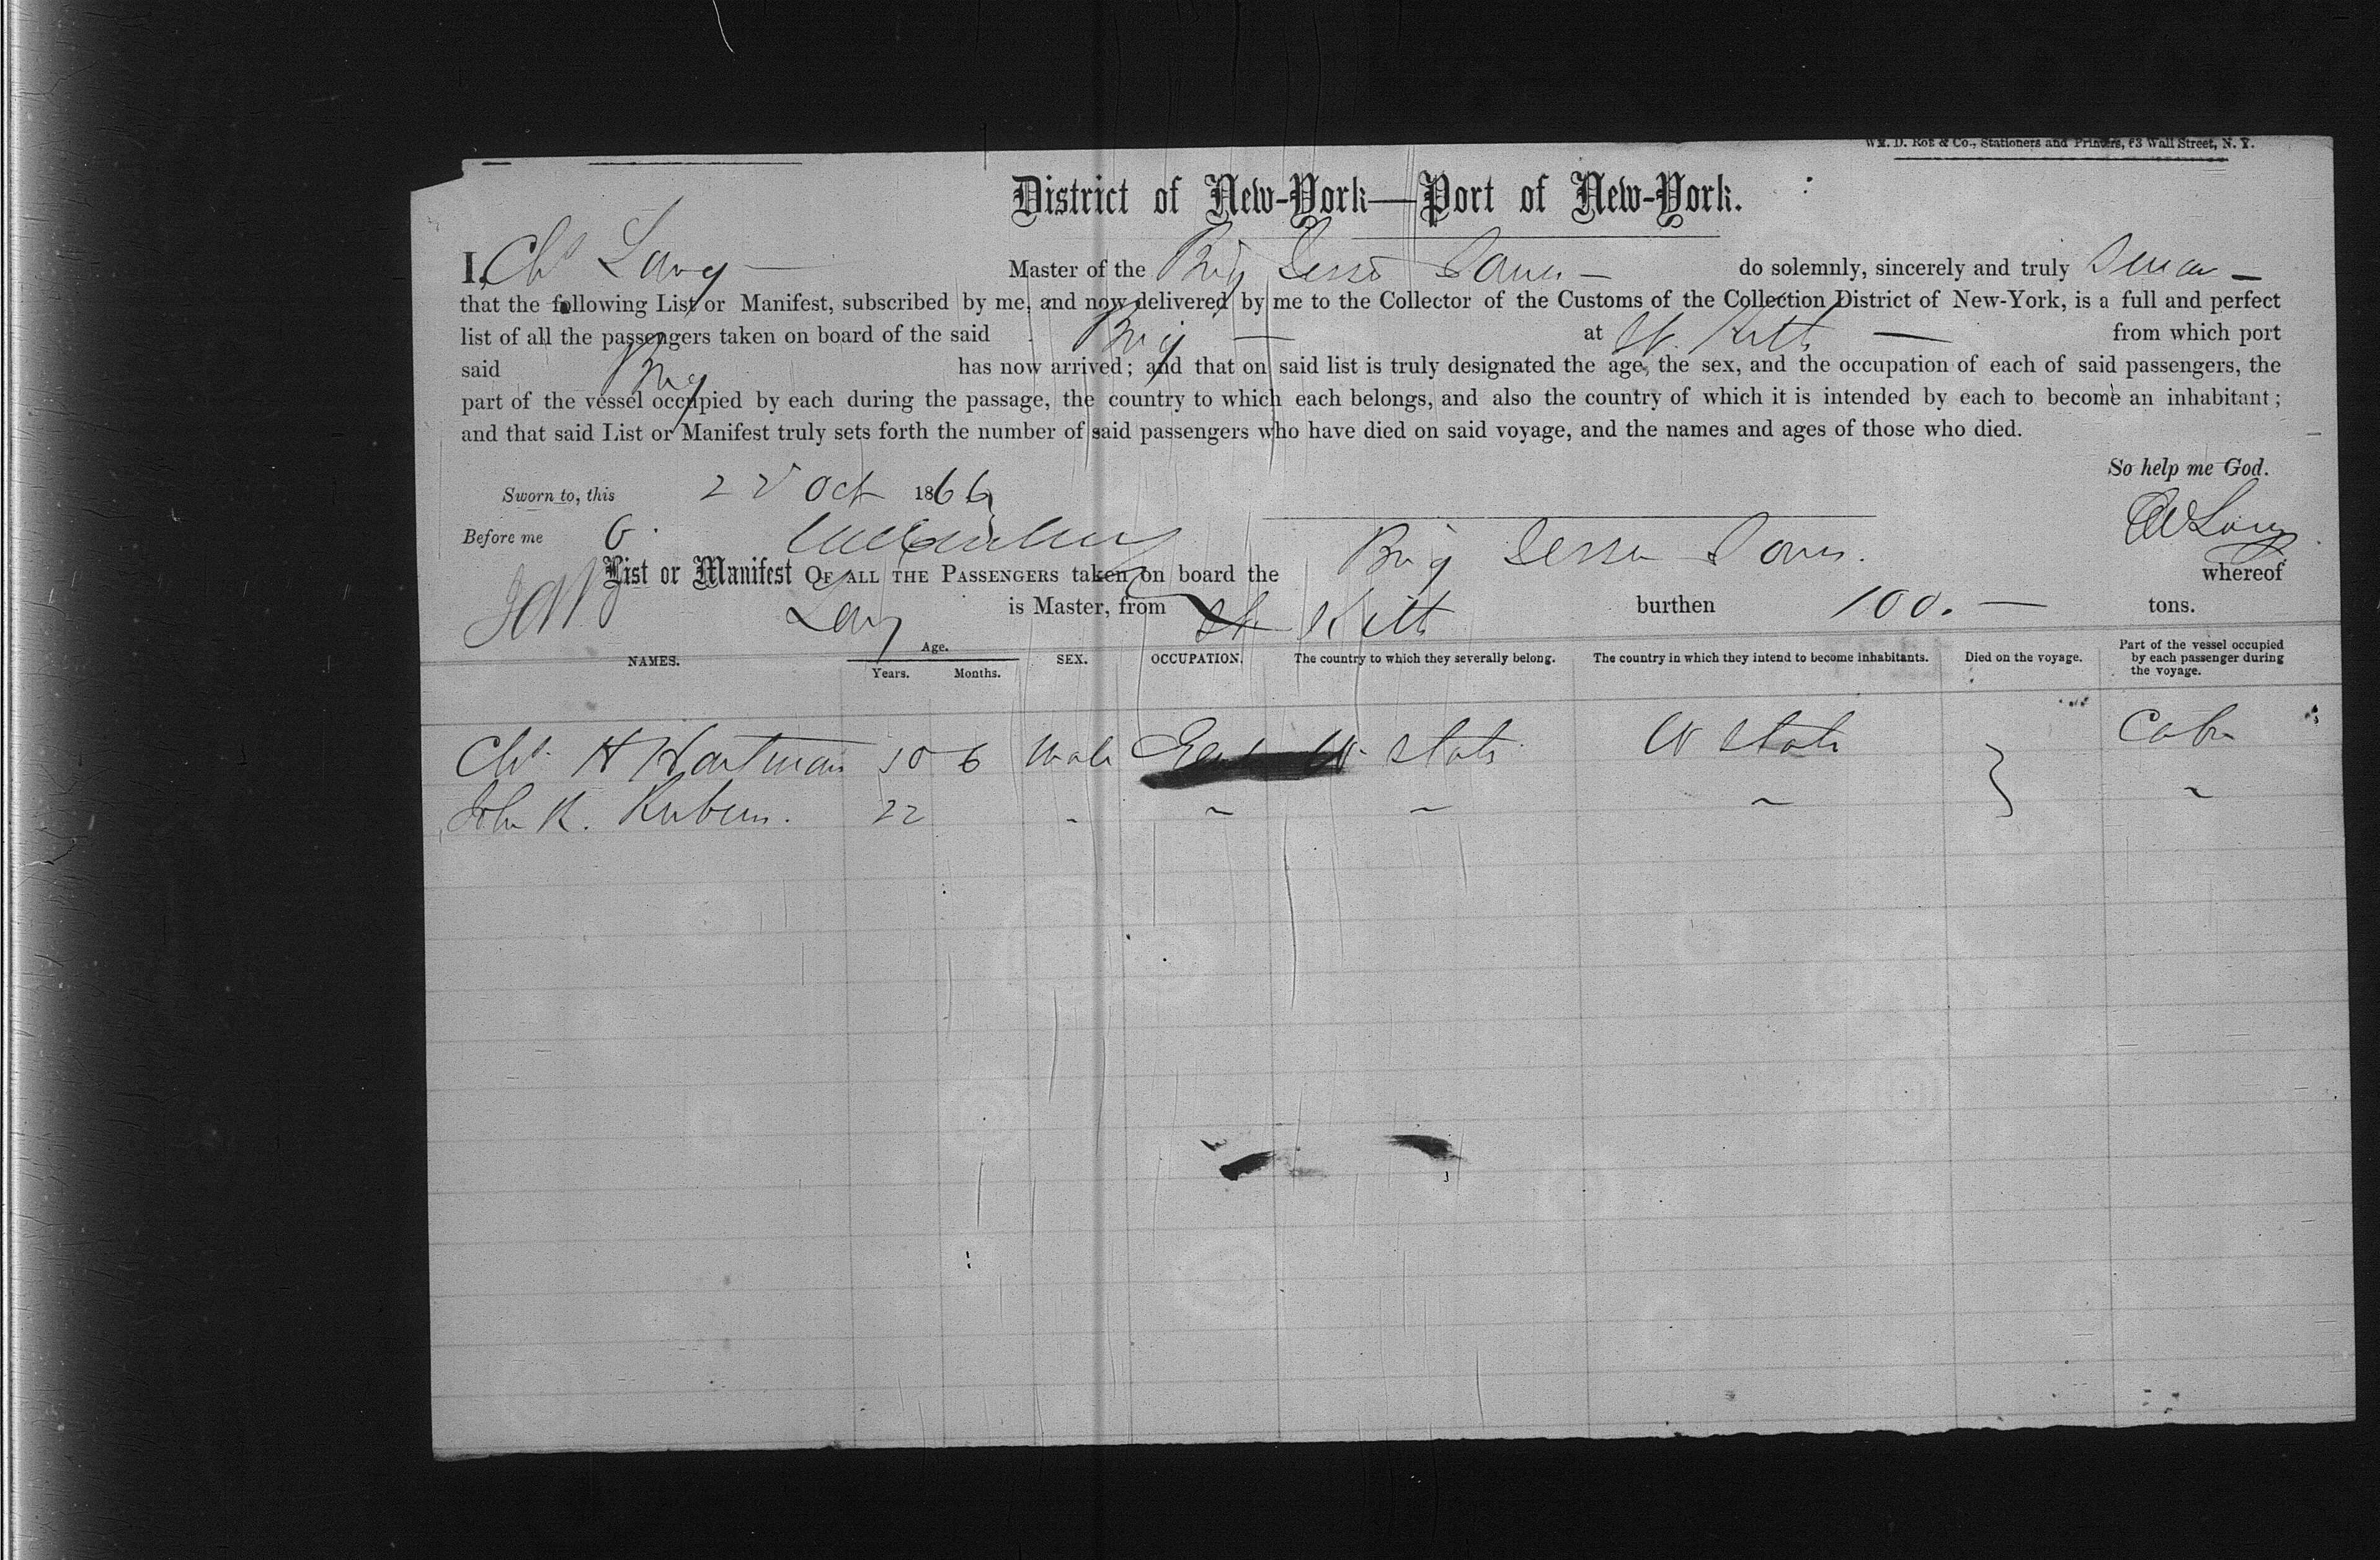 WM. D. ROE & Co., Stationers and Printers, 63 Wall Street, N. Y.
District of New-York—Port of New-York.
I, Chs Long — Master of the Brig do solemnly, sincerely and truly Swear —
that the following List or Manifest, subscribed by me, and now delivered by me to the Collector of the Customs of the Collection District of New-York, is a full and perfect
list of all the passengers taken on board of the said Brig — at St. Kitts — from which port
said Brig has now arrived; and that on said list is truly designated the age, the sex, and the occupation of each of said passengers, the
part of the vessel occupied by each during the passage, the country to which each belongs, and also the country of which it is intended by each to become an inhabitant;
and that said List or Manifest truly sets forth the number of said passengers who have died on said voyage, and the names and ages of those who died.
So help me God.
Sworn to, this 22 Oct 1866
Before me Long
List or Manifest OF ALL THE PASSENGERS taken on board the Brig whereof
Long is Master, from St Kitts burthen 100. — tons.
NAMES. Age. Years. Months. SEX. OCCUPATION. The country to which they severally belong. The country in which they intend to become inhabitants. Died on the voyage. Part of the vessel occupied by each passenger during the voyage.
Chs H Hartman 50 6 Male U States U States Cabin
John R. 22 " " " " "